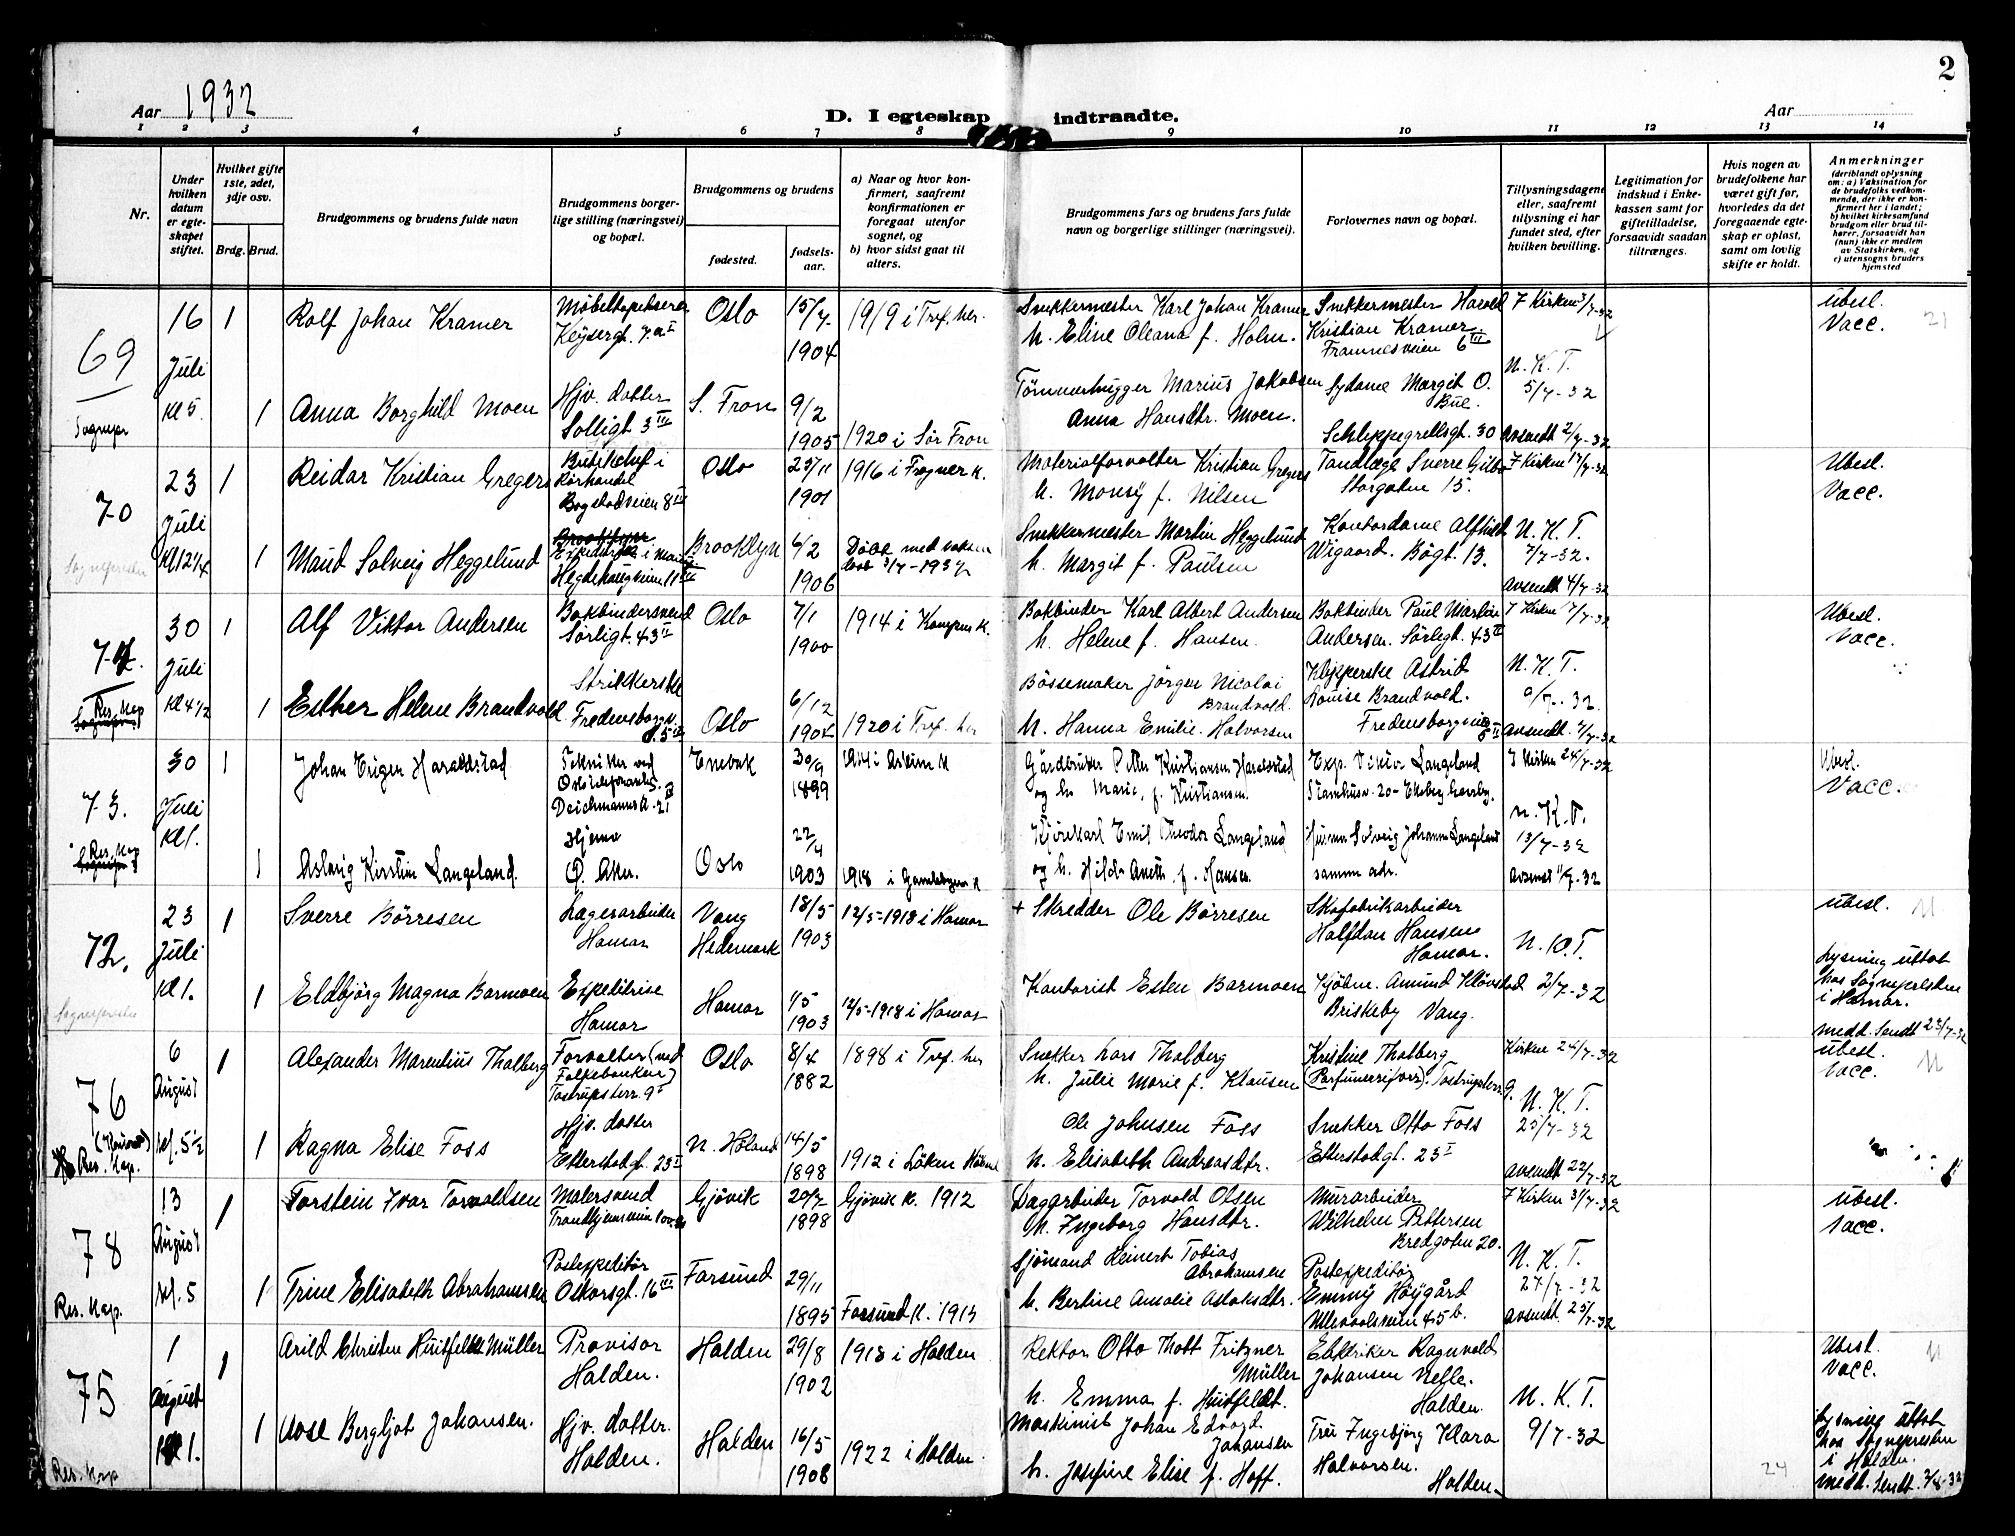 2
Aar 1932
D. I egteskap indtraadte.
Aar
1 2 3 4 5 6 7 8 9 10 11 12 13 14
Nr.
Under hvilken datum er egteskapet stiftet.
Hvilket gifte 1ste, 2det, 3dje osv.
Brdg. Brud.
Brudgommens og brudens fulde navn
Brudgommens borgerlige stilling (næringsvei) og bopæl.
Brudgommens og brudens
fødested.
fødselsaar.
a) Naar og hvor konfirmert, saafremt konfirmationen er foregaat utenfor sognet, og
b) hvor sidst gaat til alters.
Brudgommens fars og brudens fars fulde navn og borgerlige stillinger (næringsvei).
Forlovernes navn og bopæl.
Tillysningsdagene eller, saafremt tillysning ei har fundet sted, efter hvilken bevilling.
Legitimation for indskud i Enkekassen samt for giftetilladelse, forsaavidt saadan tiltrænges.
Hvis nogen av brudefolkene har været gift før, hvorledes da det foregaaende egteskap er opløst, samt om lovlig skifte er holdt.
Anmerkninger
(deriblandt oplysning om: a) Vaksination for de brudefolks vedkommende, der ikke er konfirmert her i landet; b) hvilket kirkesamfund brudgom eller brud tilhører, forsaavidt han (hun) ikke er medlem av Statskirken, og c) utensogns bruders hjemsted
69
16 Juli Kl 5
Sognepr
1 Rolf Johan Kramer
Möbeltapetserer
Keysergt. 7.a I
Oslo 15/7 1904
1919 i Tref. her.
Snekkermester Karl Johan Kramer
h. Eline Oleana f. Holm.
Snekkermester Harald
Kristian Kramer
Framnesveien 6 III
F Kirken 3/7-32
N. K. T.
5/7-32
ubesl.
Vacc.
21
1 Anna Borghild Moen
Hjv. datter
Solligt. 3 III
S. Fron 9/2 1905
1920 i Sör Fron
Tömmerhugger Marius Jakobsen
Anna Hansdtr. Moen.
Sydame Margit O.
Bue.
Schleppegrellsgt. 30
Avsendt 2/7-32
70
23 Juli Kl 12 1/4
Sognepresten
1 Reidar Kristian Gregers
Butikchef i
Rörhandel
Bogstadveien 8 III
Oslo 23/11 1901
1916 i Frogner K.
Materialforvalter Kristian Gregers
h. Monsy f. Nilsen
Tandlæge Sverre Gilbo
Storgaten 15.
F Kirken 17/7-32
Ubesl.
Vacc.
1 Maud Solveig Heggelund
Hegdehaugsveien 11 III
Brooklyn 6/2 1906
Döbt med voksen
Snekkermester Martin Heggelund
h. Margit f. Paulsen
Kontordame Alfhild
Wigaard. Bögt. 13.
N. K. T.
7/7-32.
avsendt 4/7-32
71.
30 Juli Kl 4 1/2
Res. Kap
1 Alf Viktor Andersen
Bokbindersvend
Sörligt. 43 II
Oslo 7/1 1900
1914 i Kampens K.
Bokbinder Karl Albert Andersen
h. Helene f. Hansen.
Bokbinder Paul Martin
Andersen. Sörligt. 43 II
F Kirken 17/7-32
Ubesl.
Vacc.
1 Esther Helene Brandvold
Strikkerske
Fredensborgv.
Oslo 6/12
1920 i Tref. her
Bössemaker Jörgen Nicolai
Brandvold.
h. Hanna Emilie Halvorsen
Klipperske Astrid
Louise Brandvold.
Fredensborgveien
N. K. T.
9/7-32.
avsendt 7/7-32
73.
30 Juli Kl 1.
Res. Kap
1 Johan Trygve Haraldstad
Tekniker ved
Deichmannsgt. 21
Enebak 30/9 1899
1914 i Askim K
Gårdbruker Petter Kristiansen Haraldstad
og h. Marie, f. Kristiansen.
Exp. Viktor Langeland
F Kirken 24/7-32
Ubesl.
Vacc.
1 Aslaug Kirstin Langeland.
Hjemme
Ö. Aker.
Oslo 22/4 1903
1918 i Gamlebyens K
Kjörekarl Emil Theodor Langeland
og h. Hilda Anette f. Hansen.
Solveig Johanna Langeland
samme adr.
N. K. T.
13/7-32
72.
23 Juli Kl 1.
Sognepresten
1 Sverre Börresen
Lagerarbeider
Hamar
Vang
Hedemark
18/5 1903
12/5-1918 i Hamar
+ Skredder Ole Börresen
Skofabrikarbeider
Halfdan Hansen
Hamar.
N. K. T.
ubesl.
1 Eldbjörg Magna Barmoen
Expeditrise
Hamar
Hamar 1/5 1903
12/5-1918 i Hamar
Kontorist Esten Barmoen
Kjöbm. Amund Klövstad
Briskeby Vang.
2/7-32
Lysning uttat
hos Sognepresten
i Hamar.
medd. Sendt 23/7-32
76
6 August Kl. 5 1/2
Res. Kap.
1 Alexander Marentius Thalberg
Forvalter (ved
Folkebanken)
Tostrupsterr. 9 I
Oslo 8/4 1882
1898 i Tref. her
Snekker Lars Thalberg
h. Julie Marie f. Klausen
Kristine Thalberg
(Parfumeriforr). Tostrupsterr. 9.
Kirken 24/7-32
ubesl.
Vacc.
1 Ragna Elise Foss
Hjv. datter
Etterstadgt. 23 I
N. Höland 14/5 1898
1912 i Löken Höland
Ole Johnsen Foss
h. Elisabeth Andreasdtr.
Snekker Otto Foss
Etterstadgt. 23 I
N. K. T.
23/7-32
avsendt 22/7-32
78
13 August Kl. 5
Res. Kap.
1 Torstein Ivar Torvaldsen
Malersvend
Gjövik 20/7 1898
Gjövik K. 1912
Dagarbeider Torvald Olsen
h. Ingeborg Hansdtr.
Murarbeider
Wilhelm Pettersen
Bredgaten 20.
F Kirken 31/7-32
ubesl.
vacc.
1 Trine Elisabeth Abrahamsen
Postexpeditör
Oskarsgt. 16 III
Farsund 29/11 1895
Farsund K. 1913
Sjömand Reinert Tobias
Abrahamsen
h. Bertine Amalie Aslaksdtr.
Postexpeditör
Emmy Höygård
Ullevoldsveien 45 b.
N. K. T.
27/7-32
avsendt 25/7-32
75
1 August Kl 1.
Res. Kap
1 Arild Christen Huitfeldt Müller
Provisor
Halden.
Halden 29/8 1902
1918 i Halden
Rektor Otto Thott Fritzner
Müller
h. Emma f. Huitfeldt.
Elektriker Ragnvald
Johansen Nefle.
Halden.
N. K. T.
Ubesl.
Vacc.
1 Aase Bergljot Johansen.
Hjv. datter.
Halden.
Halden 16/5 1908
1922 i Halden.
Maskinist Johan Edvard
Johansen
h. Josefine Elise f. Hoff.
Fru Ingebjörg Klara
Halvorsen.
Halden.
9/7-32
24
Lysning uttat
hos Sognepresten
i Halden.
medd. Sendt. 2/8-32